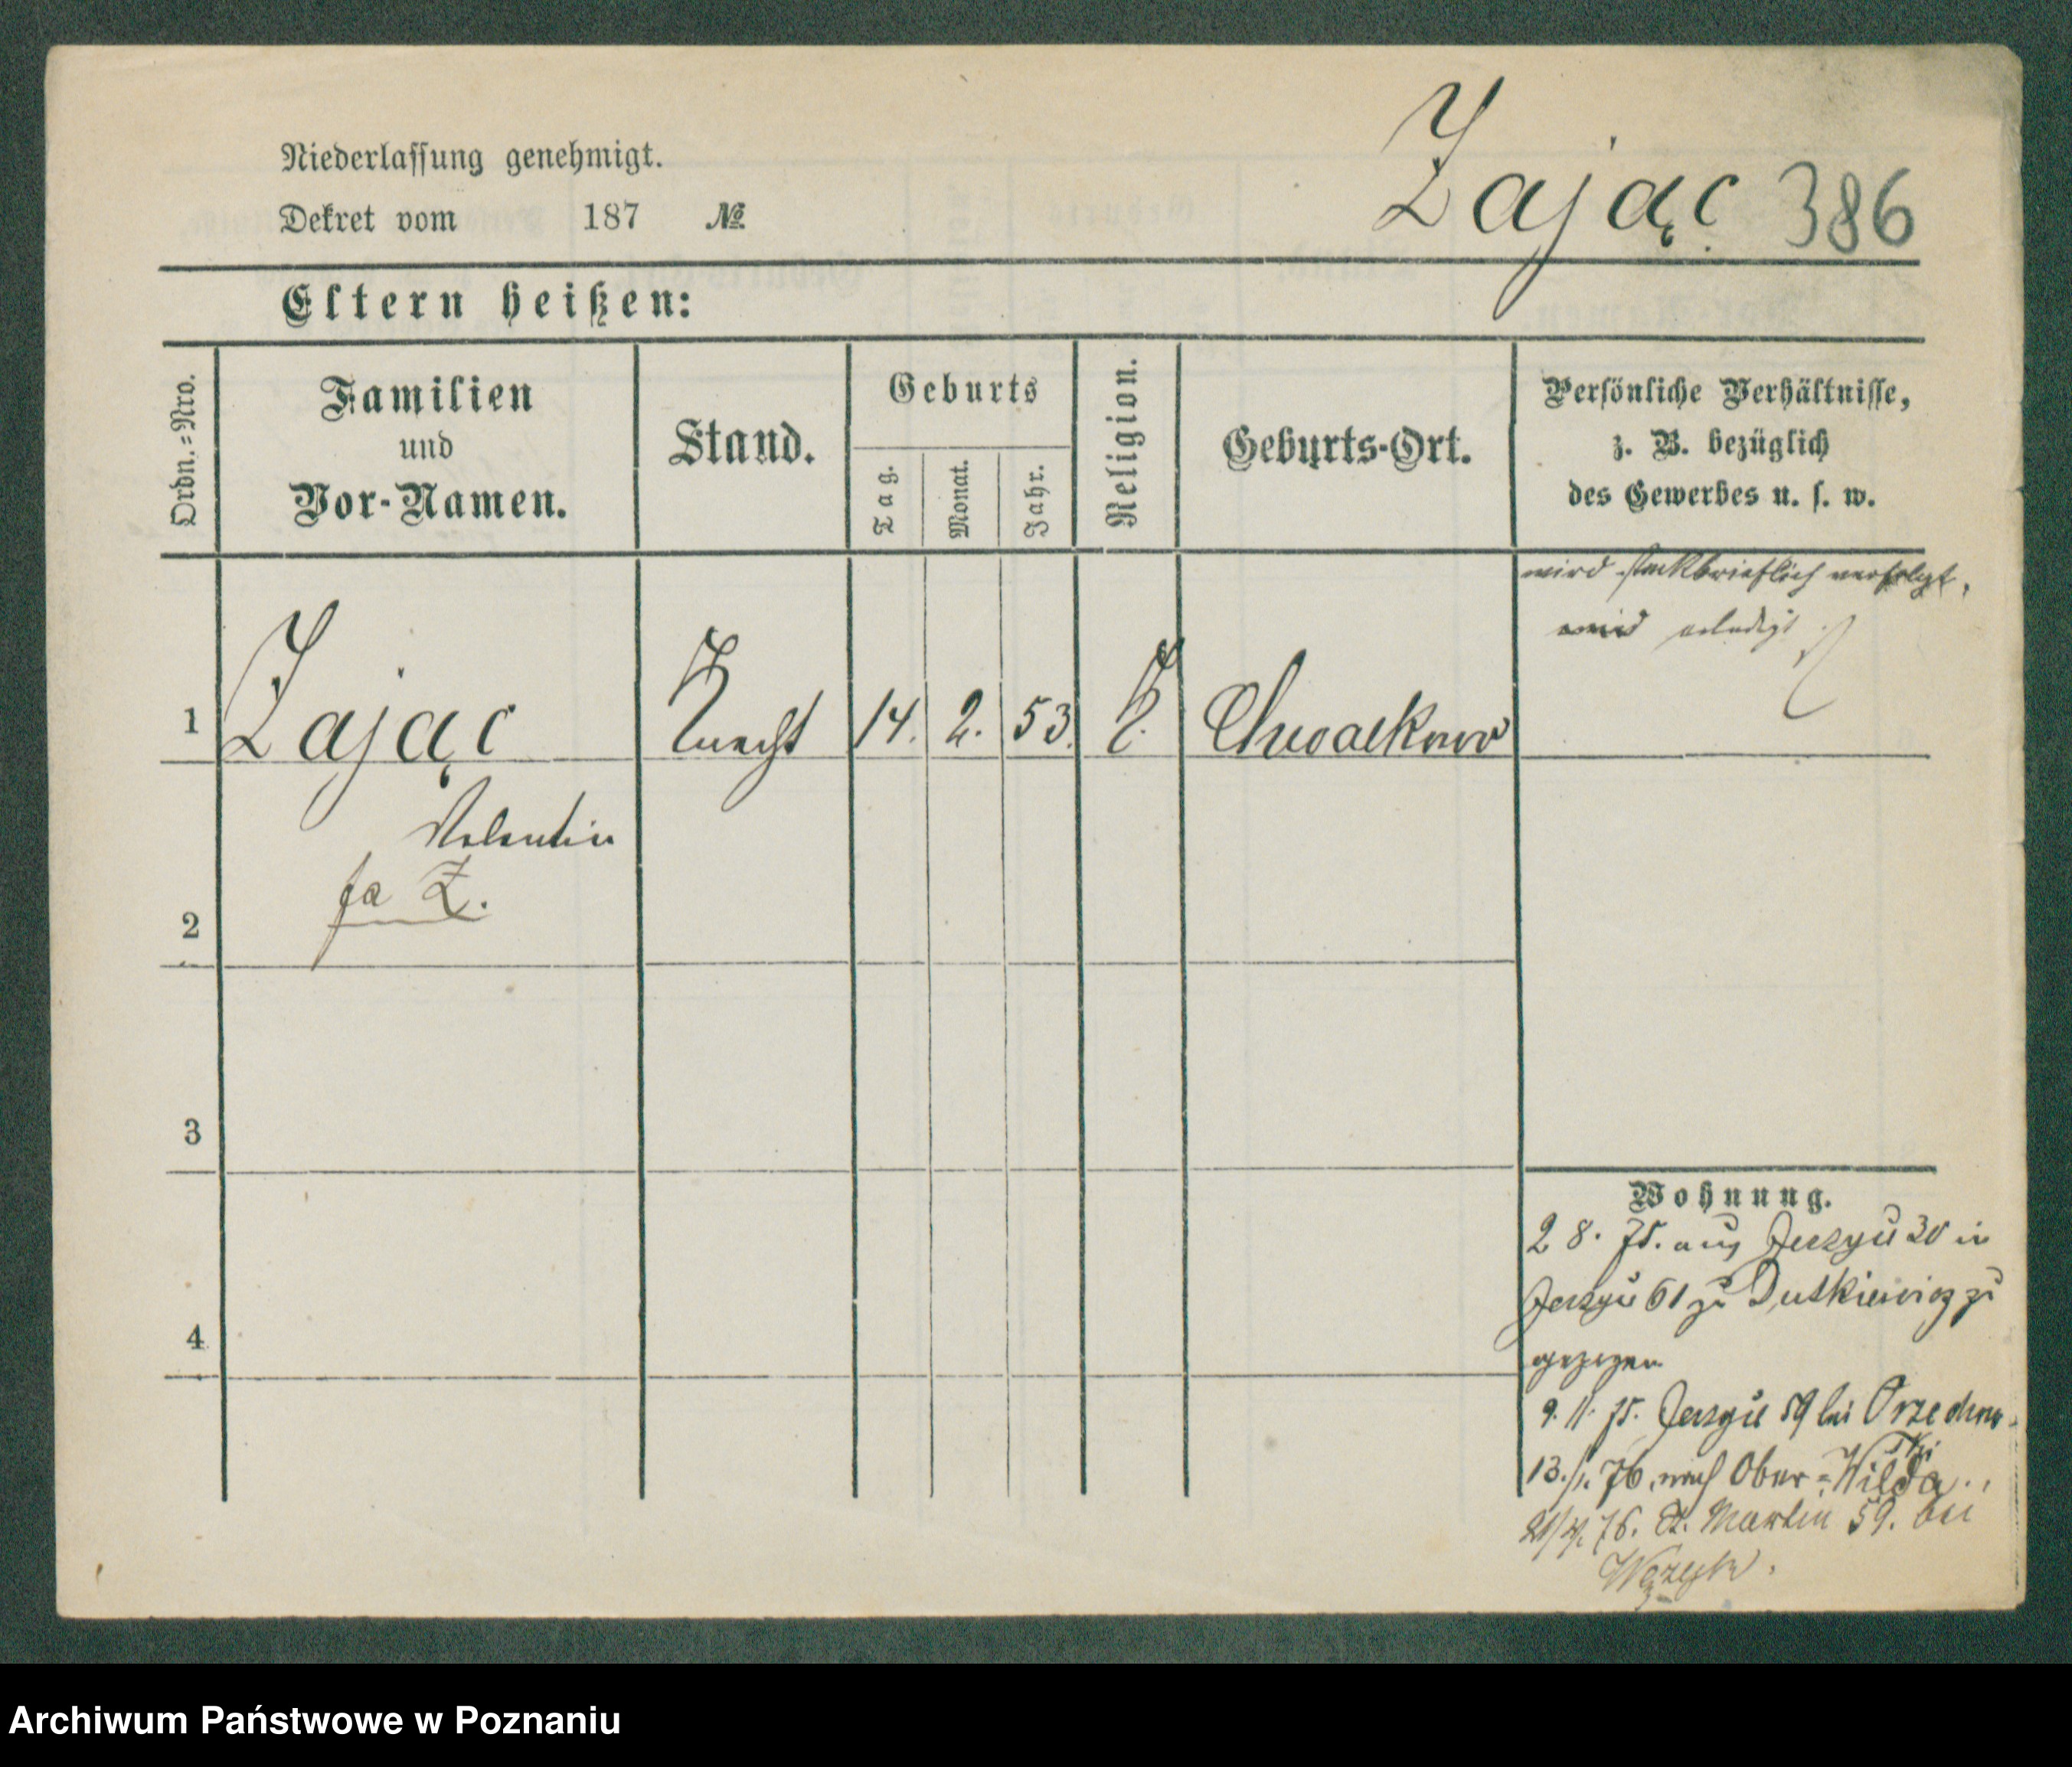 Niederlassung genehmigt.
Dekret vom 187 №
Zając 386
Eltern heißen:
Ordn.=Nro.
Familien
und
Vor-Namen.
Stand.
Geburts
Tag.
Monat.
Jahr.
Religion.
Geburts-Ort.
Persönliche Verhältnisse,
z. B. bezüglich
des Gewerbes u. s. w.
wird steckbrieflich verfolgt,
erledigt
1 Zając Knecht 14. 2. 53. K.
Valentin
2
3
4
Wohnung.
2 8. 75. aus Jerzyce 30 in
Jerzyce 61 zu Dutkiewicz
gezogen
9. 11. 75. Jerzyce 59 bei Orzechow-
ski
13./1. 76. nach Ober=Wilda.
21/4. 76. St. Martin 59. bei
Archiwum Państwowe w Poznaniu